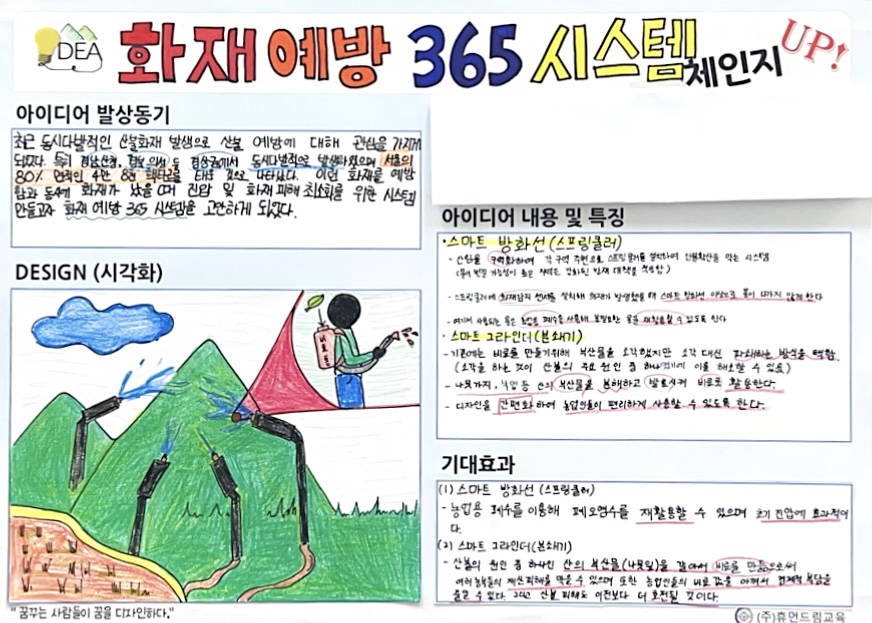 IDEA
화재 예방 365 시스템
체인지 UP!
아이디어 발상동기
최근 동시다발적인 산불화재 발생으로 산불 예방에 대해 관심을 가지게
되었다. 특히 경남산청, 경북 의성 등 경상권에서 동시다발적으로 발생하였으며 서울의
80% 면적인 4만 8천 헥타르를 태운 것으로 나타났다. 이런 화재를 예방
함과 동시에 화재가 났을 때 진압 및 화재 피해 최소화를 위한 시스템
만들고자 화재 예방 365 시스템을 고안하게 되었다.
DESIGN (시각화)
비료통
"꿈꾸는 사람들이 꿈을 디자인하다."
아이디어 내용 및 특징
· 스마트 방화선 (스프링쿨러)
- 산림을 구역화하여 각 구역 주변으로 스프링쿨러를 설치하여 산불확산을 막는 시스템
- 스프링쿨러에 화재감지 센서를 설치해 화재가 발생했을 때 스마트 방화선 이상으로 불이 나가지 않게 한다
- 여기서 사용되는 물은 농업용 폐수를 사용해 물을 재활용할 수 있도록 한다
· 스마트 그라인더 (분쇄기)
- 기존에는 비료를 만들기위해 부산물을 소각했지만 소각 대신 파쇄하는 방식을 택함
(소각을 하는 것이 산불의 주요 원인 중 하나였기에 이를 해소할 수 있음)
- 나뭇가지, 낙엽 등 산의 부산물을 분해하고 발효시켜 비료로 활용한다.
- 디자인을 간편화 하여 농업인들이 편리하게 사용할 수 있도록 한다.
기대효과
(1) 스마트 방화선 (스프링쿨러)
- 농업용 폐수를 이용해 폐오염수를 재활용할 수 있으며 초기 진압에 효과적이
다.
(2) 스마트 그라인더 (분쇄기)
- 산불의 원인 중 하나인 산의 부산물(나뭇잎)을 갈아서 비료를 만듦으로써
여러 농민들의 재산피해를 막을 수 있으며 또한 농업인들의 비료 값을 아껴서 경제적 부담을
줄일 수 있다. 그리고 산불 피해도 이전보다 더 호전될 것이다.
(주)휴먼드림교육